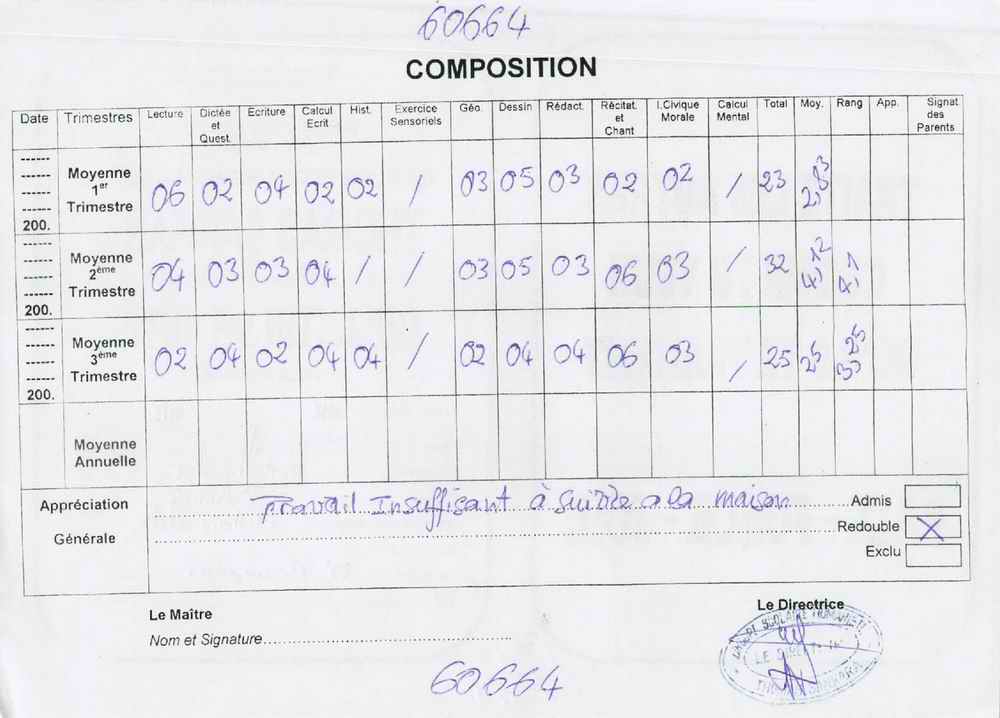 60664
COMPOSITION
Date Trimestres Lecture Dictée et Quest. Ecriture Calcul Ecrit Hist. Exercice Sensoriels Géo. Dessin Rédact. Récitat. et Chant I.Civique Morale Calcul Mental Total Moy. Rang App. Signat des Parents
------
------
------
------
200. Moyenne 1er Trimestre 06 02 04 02 02 / 03 05 03 02 02 / 23
------
------
------
------
200. Moyenne 2ème Trimestre 04 03 03 04 / / 03 05 03 06 03 / 32
------
------
------
------
200. Moyenne 3ème Trimestre 02 04 02 04 04 / 02 04 04 06 03 / 25
Moyenne Annuelle
Appréciation Générale Travail Insuffisant à suivre a la maison
Admis
Redouble X
Exclu
Le Maître
Nom et Signature
Le Directrice
SCOLAIRE
LE DIRECT
SANKARA
60664